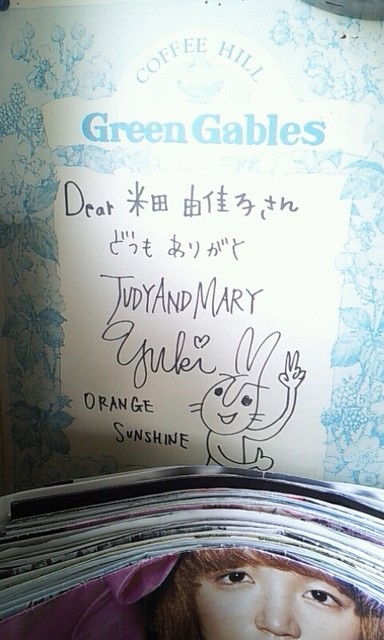 COFFEE HILL
Green Gables
Dear 米田 由佳子さん
どうも ありがと
JUDY AND MARY
yuki
ORANGE
SUNSHINE